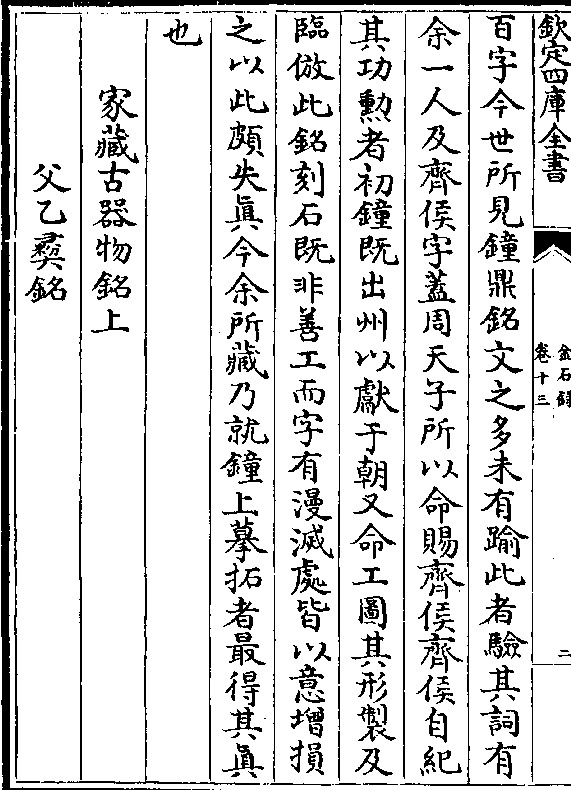 欽定四庫全書
金石錄
卷十三
二
百字今世所見鐘鼎銘文之多未有踰此者驗其詞有
余一人及齊侯字蓋周天子所以命賜齊侯齊侯自紀
其功勳者初鐘既出州以獻于朝又命工圖其形製及
臨倣此銘刻石既非善工而字有漫滅處皆以意增損
之以此頗失眞今余所藏乃就鐘上摹拓者最得其眞
也
家藏古器物銘上
父乙彞銘